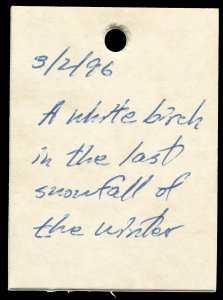 3/2/96
A white birch
in the last
snowfall of
the winter